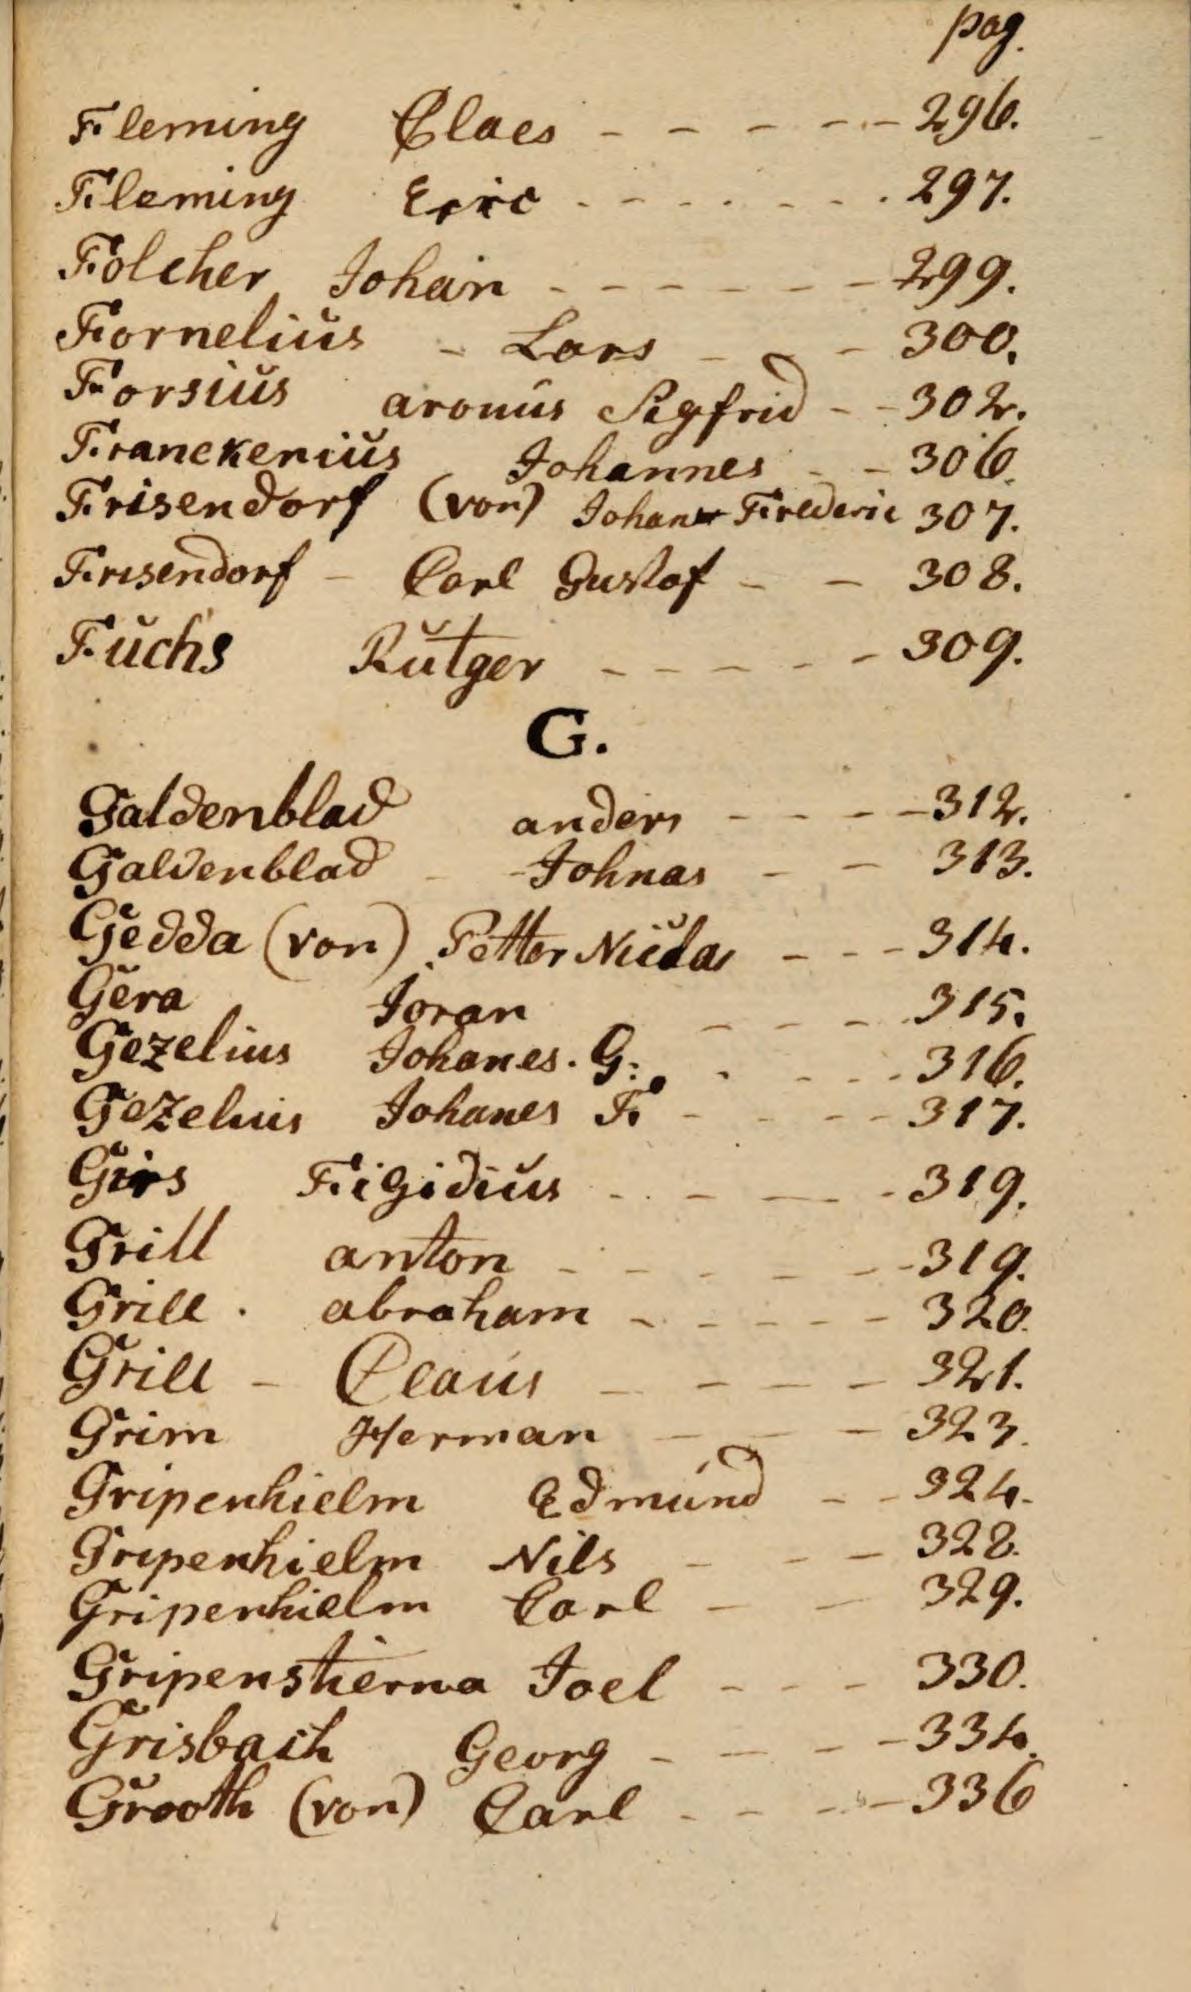 pag.
Fleming Claes - - - - - 296.
Fleming Eric - - - - - - - 297.
Folcher Johan - - - - - - - 299.
Fornelius - Lars - - - 300.
Forsius aronus Sigfrid - - 302.
Franckenius Johannes - - 306.
Frisendorf (von) Johan Frederic 307.
Frisendorf - Carl Gustaf - - 308.
Fuchs Rutger - - - - - - 309.
G.
Galdenblad anders - - - - 312.
Galdenblad - Johnas - - 313.
Gedda (von) Petter Niclas - - - 314.
Gera Joran - - - - 315.
Gezelius Johanes. G: - - - - 316.
Gezelius Johanes F. - - - - 317.
Girs Figidius - - - - - 319.
Grill anton - - - - - - 319.
Grill. abraham - - - - - 320.
Grill - Claus - - - - 321.
Grim Herman - - - 323.
Gripenhielm Edmund - - 324.
Gripenhielm Nils - - - 328.
Gripenhielm Carl - - 329.
Gripenstierna Joel - - - 330.
Grisbach Georg - - - - 334.
Grooth (von) Carl - - - - 336